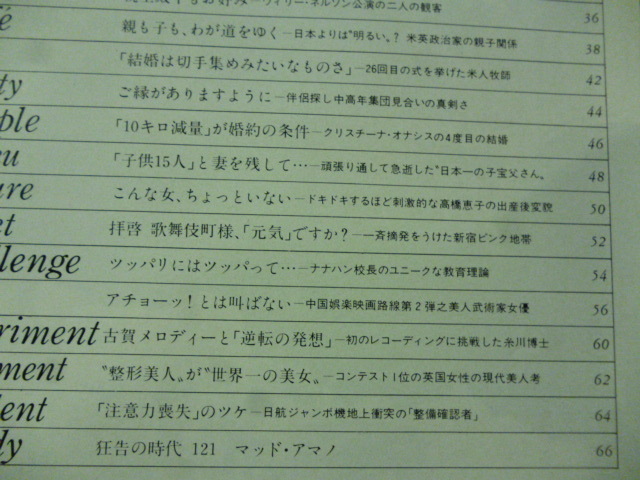 ウィリー・ネルソン公演の二人の観客 36
親も子も、わが道をゆく—日本よりは〝明るい〟? 米英政治家の親子関係 38
「結婚は切手集めみたいなものさ」—26回目の式を挙げた米人牧師 42
ty ご縁がありますように—伴侶探し中高年集団見合いの真剣さ 44
ple 「10キロ減量」が婚約の条件—クリスチーナ・オナシスの4度目の結婚 46
eu 「子供15人」と妻を残して…—頑張り通して急逝した〝日本一の子宝父さん〟 48
ure こんな女、ちょっといない—ドキドキするほど刺激的な高橋恵子の出産後変貌 50
et 拝啓 歌舞伎町様、「元気」ですか?—一斉摘発をうけた新宿ピンク地帯 52
llenge ツッパリにはツッパって…—ナナハン校長のユニークな教育理論 54
アチョーッ!とは叫ばない—中国娯楽映画路線第2弾之美人武術家女優 56
riment 古賀メロディーと「逆転の発想」—初のレコーディングに挑戦した糸川博士 60
ment 〝整形美人〟が〝世界一の美女〟—コンテスト1位の英国女性の現代美人考 62
dent 「注意力喪失」のツケ—日航ジャンボ機地上衝突の「整備確認者」 64
dy 狂告の時代 121 マッド・アマノ 66